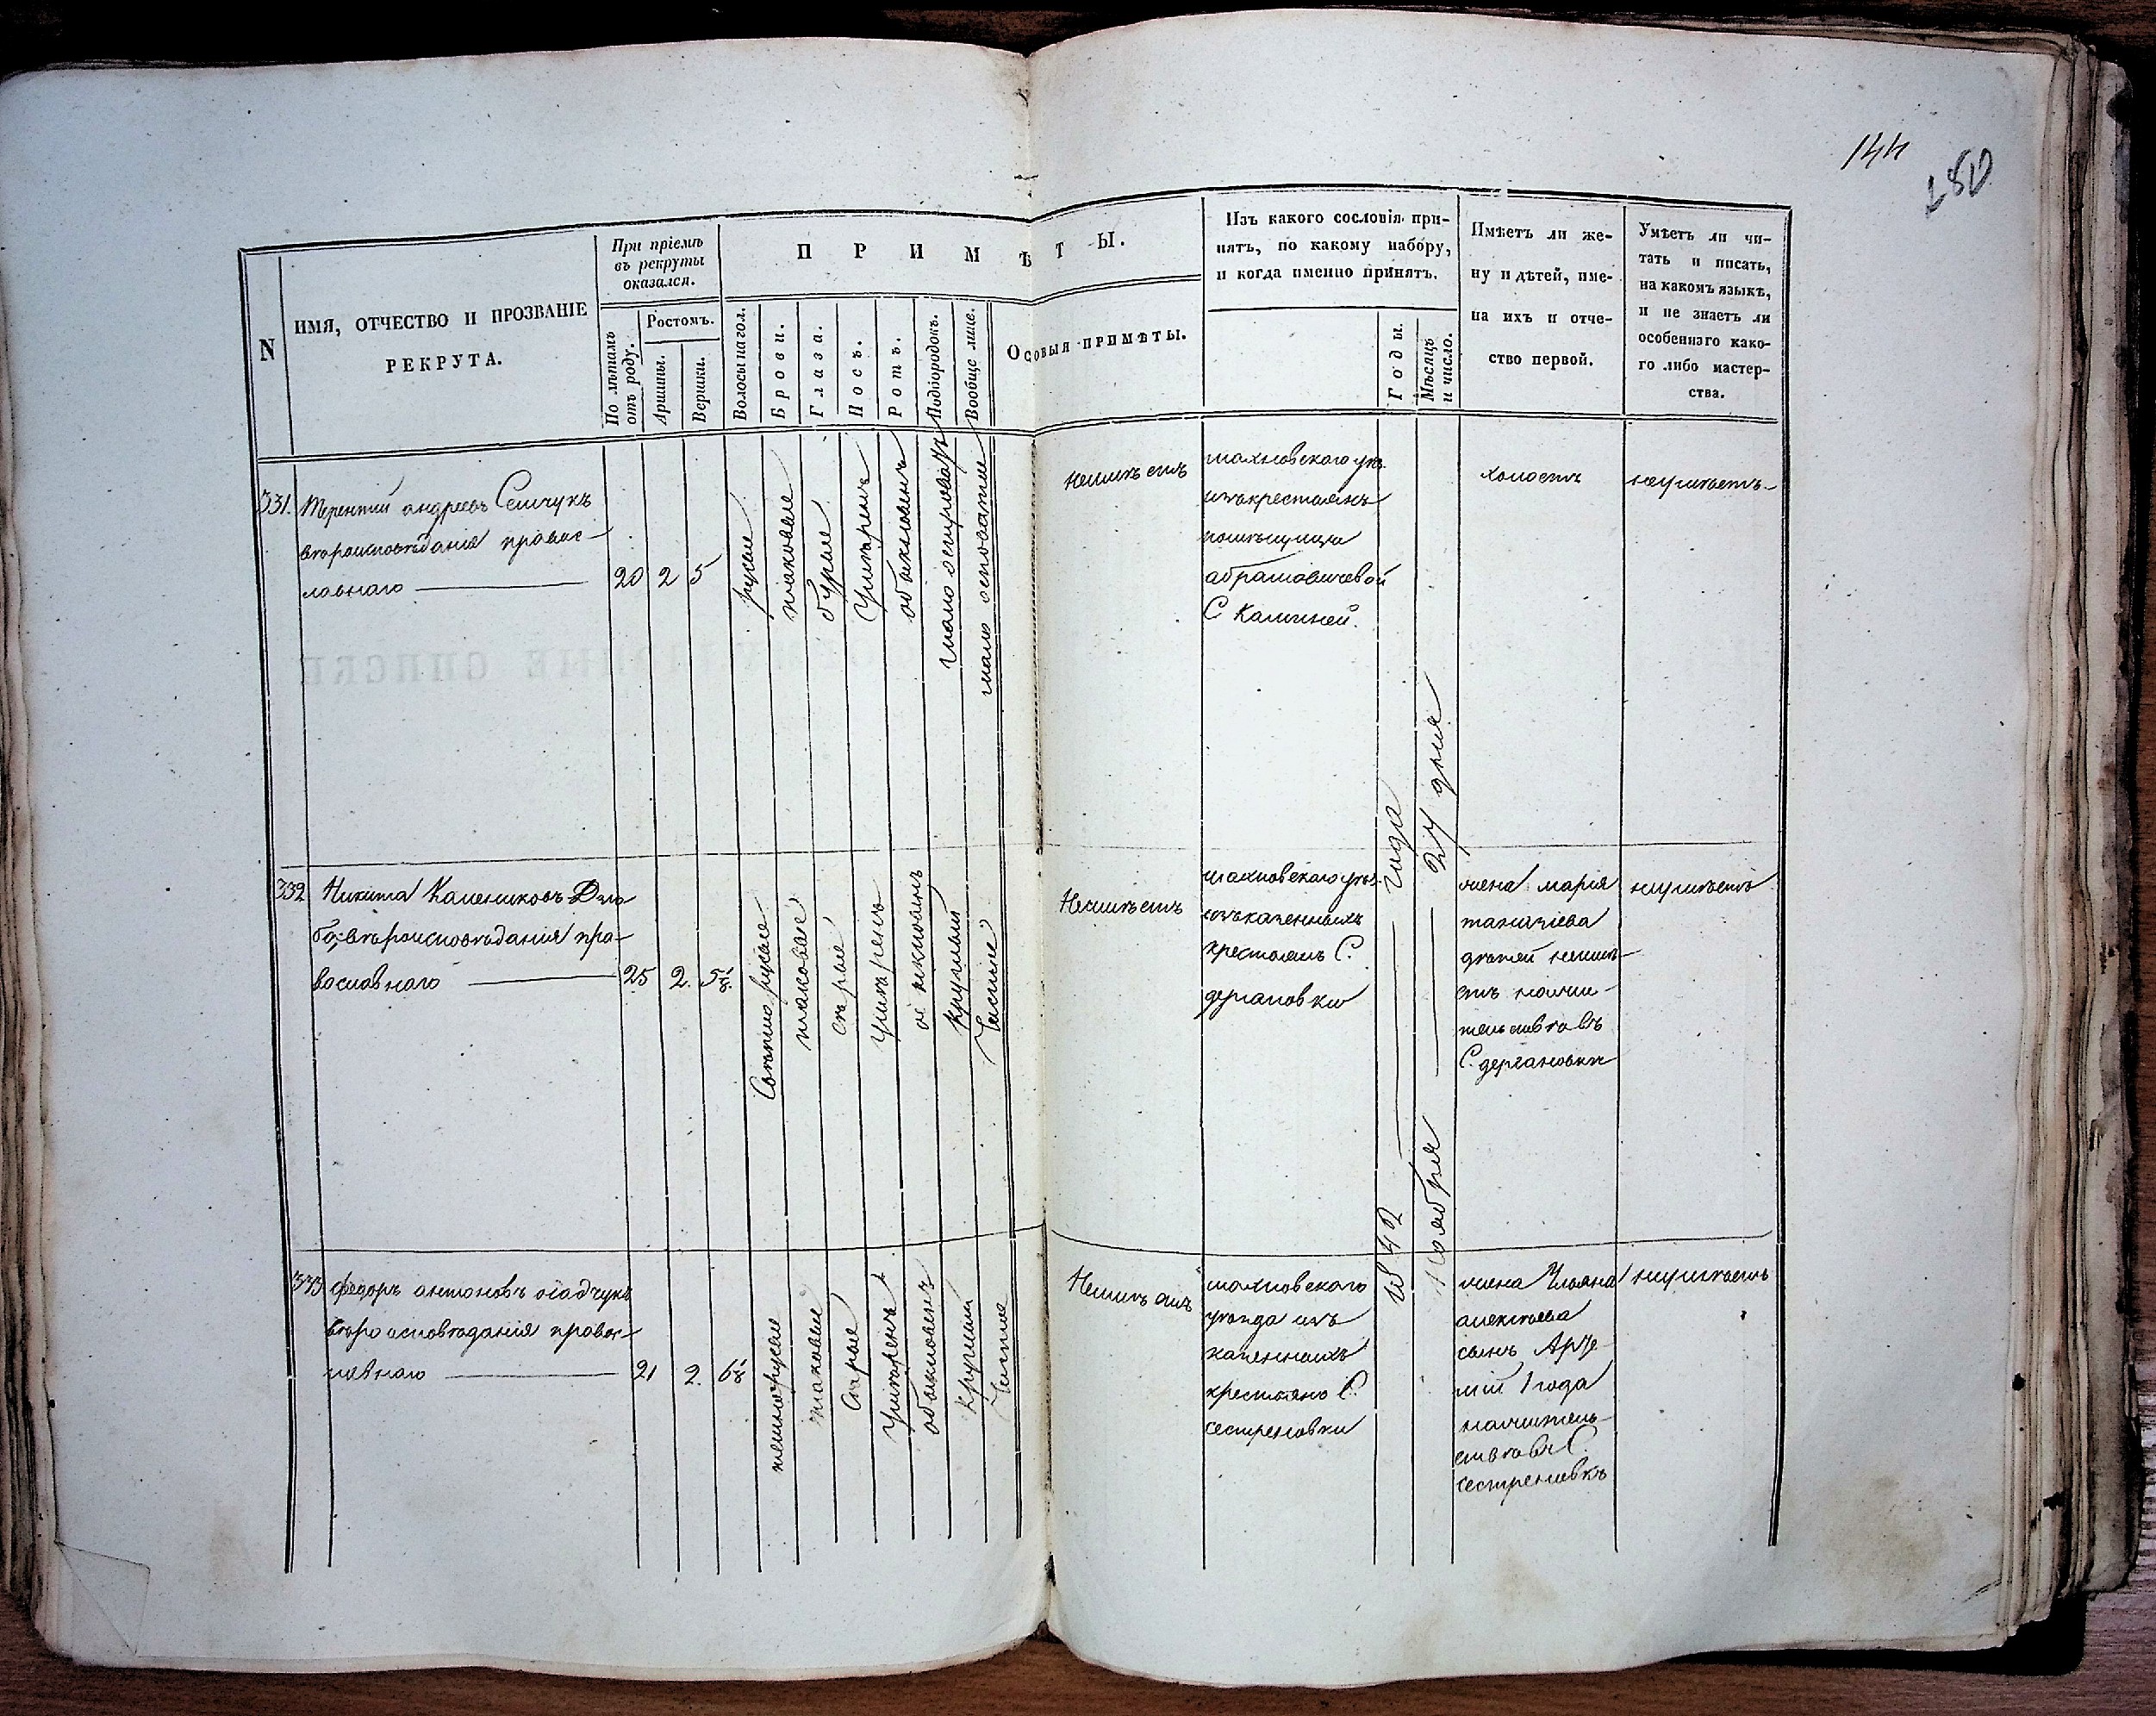 144
280
N
ИМЯ, ОТЧЕСТВО И ПРОЗВАНІЕ
РЕКРУТА.
При пріемѣ
въ рекруты
оказался.
По лѣтамъ
отъ роду.
Ростомъ.
Аршины.
Вершки.
ПРИМѢТЫ.
Волосы на гол.
Брови.
Глаза.
Носъ.
Ротъ.
Подбородокъ.
Вообще лице.
Особыя примѣты.
Изъ какого сословія при-
нятъ, по какому набору,
и когда именно принятъ.
Годы.
Мѣсяцъ
и число.
Имѣетъ ли же-
ну и дѣтей, име-
на ихъ и отче-
ство первой.
Умѣетъ ли чи-
тать и писать,
на какомъ языкѣ,
и не знаетъ ли
особеннаго како-
го либо мастер-
ства.
331.
Терентій андреевъ Семчукъ
вѣроисповѣданія правос-
лавнаго
20
2
5
русые
таковые
бурые
Умѣренъ
обыкновенъ
мало островатъ
мало осповатые
неимѣетъ
махновскаго уѣз.
изъ крестьянъ
помѣщицы
абрамовичевой
С
холостъ
неумѣетъ
332
Никита
вѣроисповѣданія пра-
вославнаго
25
2.
5 1/8.
Свѣтло русые
таковые
сѣрые
умѣренъ
обыкновенъ
круглый
Чистые
Неимѣетъ
махновскаго уѣз.
изъ казенныхъ
крестьянъ С.
жена марія
дѣтей неимѣ-
етъ
С.
неумѣетъ
333
федоръ антоновъ осадчукъ
вѣроисповѣданія правос-
лавнаго
21
2.
6 1/8
темнорусые
таковые
Сѣрые
умѣренъ
обыкновенъ
круглый
Чистые
Неимѣетъ
махновскаго
уѣзда изъ
казенныхъ
крестьянъ С.
сестреновки
1842 года
Ноября 24 дня
жена Ульяна
алексѣева
сынъ Арте-
мій 1 года
жительствъ
въ С.
сестреновкѣ
неумѣетъ